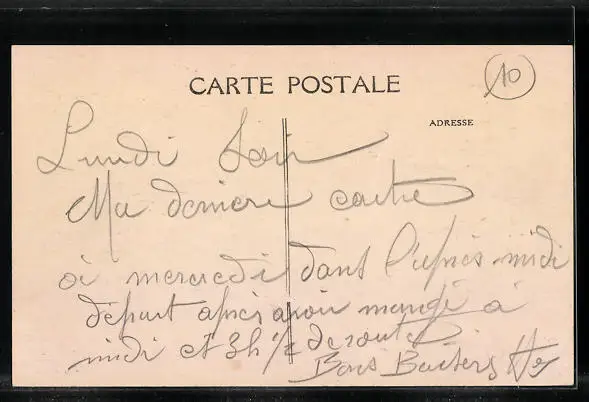 10
CARTE POSTALE
ADRESSE
Lundi Soir
Ma derniere carte
à mercredi dans l'après-midi
départ après avoir mangé à
midi et 3h 1/2 de route
Bons Baisers